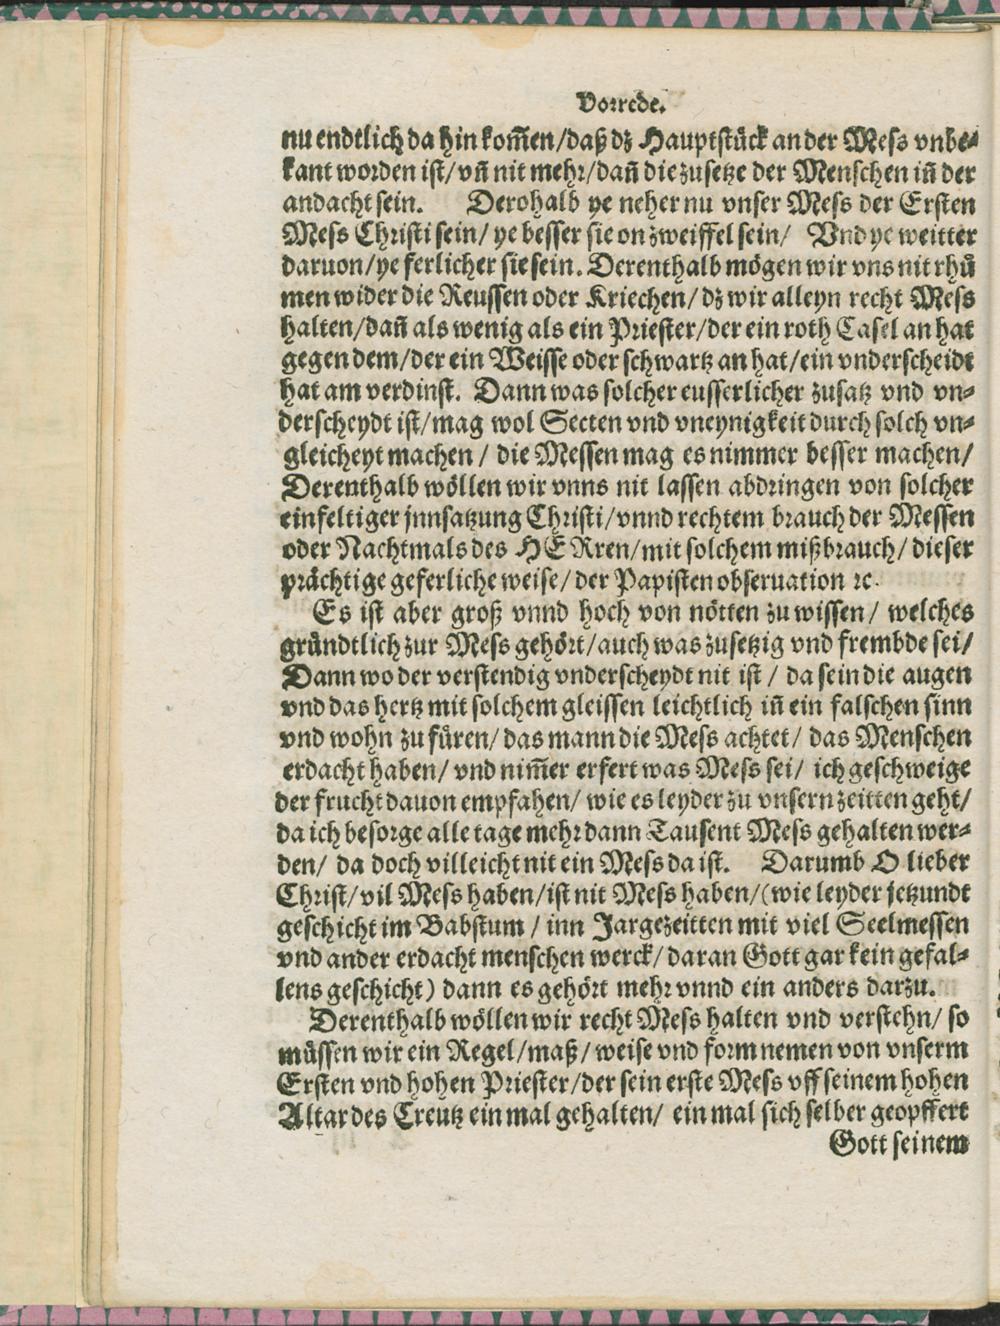 Vorrede.
nu endtlich da hin kom̃en/daß dz Hauptstück an der Mess vnbe-
kant worden ist/vñ nit mehr/dañ die zusetze der Menschen iñ der
andacht sein. Derohalb ye neher nu vnser Mess der Ersten
Mess Christi sein/ ye besser sie on zweiffel sein/ Vnd ye weitter
daruon/ye ferlicher sie sein. Derenthalb mögen wir vns nit rhů
men wider die Reussen oder Kriechen/ dz wir alleyn recht Mess
halten/dañ als wenig als ein Priester/der ein roth Casel an hat
gegen dem/der ein Weisse oder schwartz an hat/ein vnderscheidt
hat am verdinst. Dann was solcher eusserlicher zusatz vnd vn-
derscheydt ist/mag wol Secten vnd vneynigkeit durch solch vn-
gleicheyt machen / die Messen mag es nimmer besser machen/
Derenthalb wöllen wir vnns nit lassen abdringen von solcher
einfeltiger jnnsatzung Christi/vnnd rechtem brauch der Messen
oder Nachtmals des HERren/mit solchem mißbrauch/ dieser
prächtige geferliche weise/ der Papisten obseruation ꝛc.
Es ist aber groß vnnd hoch von nötten zu wissen/ welches
gründtlich zur Mess gehört/auch was zusetzig vnd frembde sei/
Dann wo der verstendig vnderscheydt nit ist / da sein die augen
vnd das hertz mit solchem gleissen leichtlich iñ ein falschen sinn
vnd wohn zu füren/ das mann die Mess achtet/ das Menschen
erdacht haben/ vnd nim̃er erfert was Mess sei/ ich geschweige
der frucht dauon empfahen/ wie es leyder zu vnsern zeitten geht/
da ich besorge alle tage mehr dann Tausent Mess gehalten wer-
den/ da doch villeicht nit ein Mess da ist. Darumb O lieber
Christ/vil Mess haben/ist nit Mess haben/(wie leyder jetzundt
geschicht im Babstum / inn Jargezeitten mit viel Seelmessen
vnd ander erdacht menschen werck/ daran Gott gar kein gefal-
lens geschicht) dann es gehört mehr vnnd ein anders darzu.
Derenthalb wöllen wir recht Mess halten vnd verstehn/ so
müssen wir ein Regel/maß/ weise vnd form nemen von vnserm
Ersten vnd hohen Priester/der sein erste Mess vff seinem hohen
Altar des Creutz ein mal gehalten/ ein mal sich selber geopffert
Gott seinem